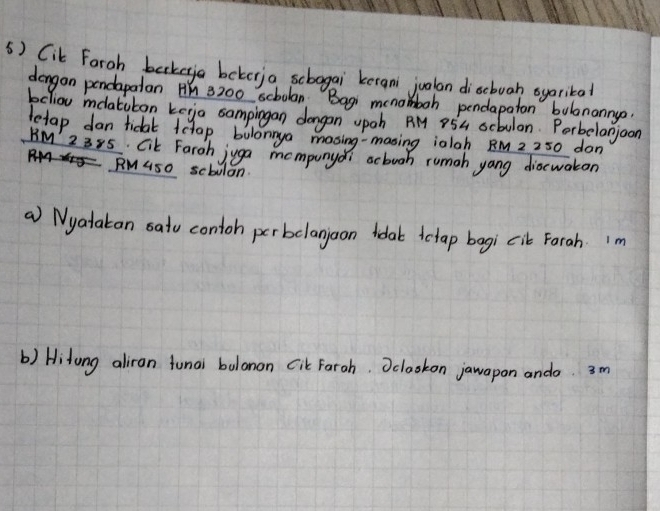 5) Cik Farah berkerja bekerja sebagai kerani jualan di sebuah syarikat
dengan pendapatan RM 3200 sebulan. Bagi menambah pendapatan bulanannya,
beliau melakukan kerja sampingan dengan upah RM 854 sebulan. Perbelanjaan
tetap dan tidak tetap bulannya masing-masing ialah RM 2 250 dan
RM 2 385. Cik Farah juga mempunyai sebuah rumah yang disewakan
RM 45 RM 450 sebulan.
a) Nyatakan satu contoh perbelanjaan tidak tetap bagi cik Farah. 1m
b) Hitung aliran tunai bulanan Cik Farah. Jelaskan jawapan anda. 3m